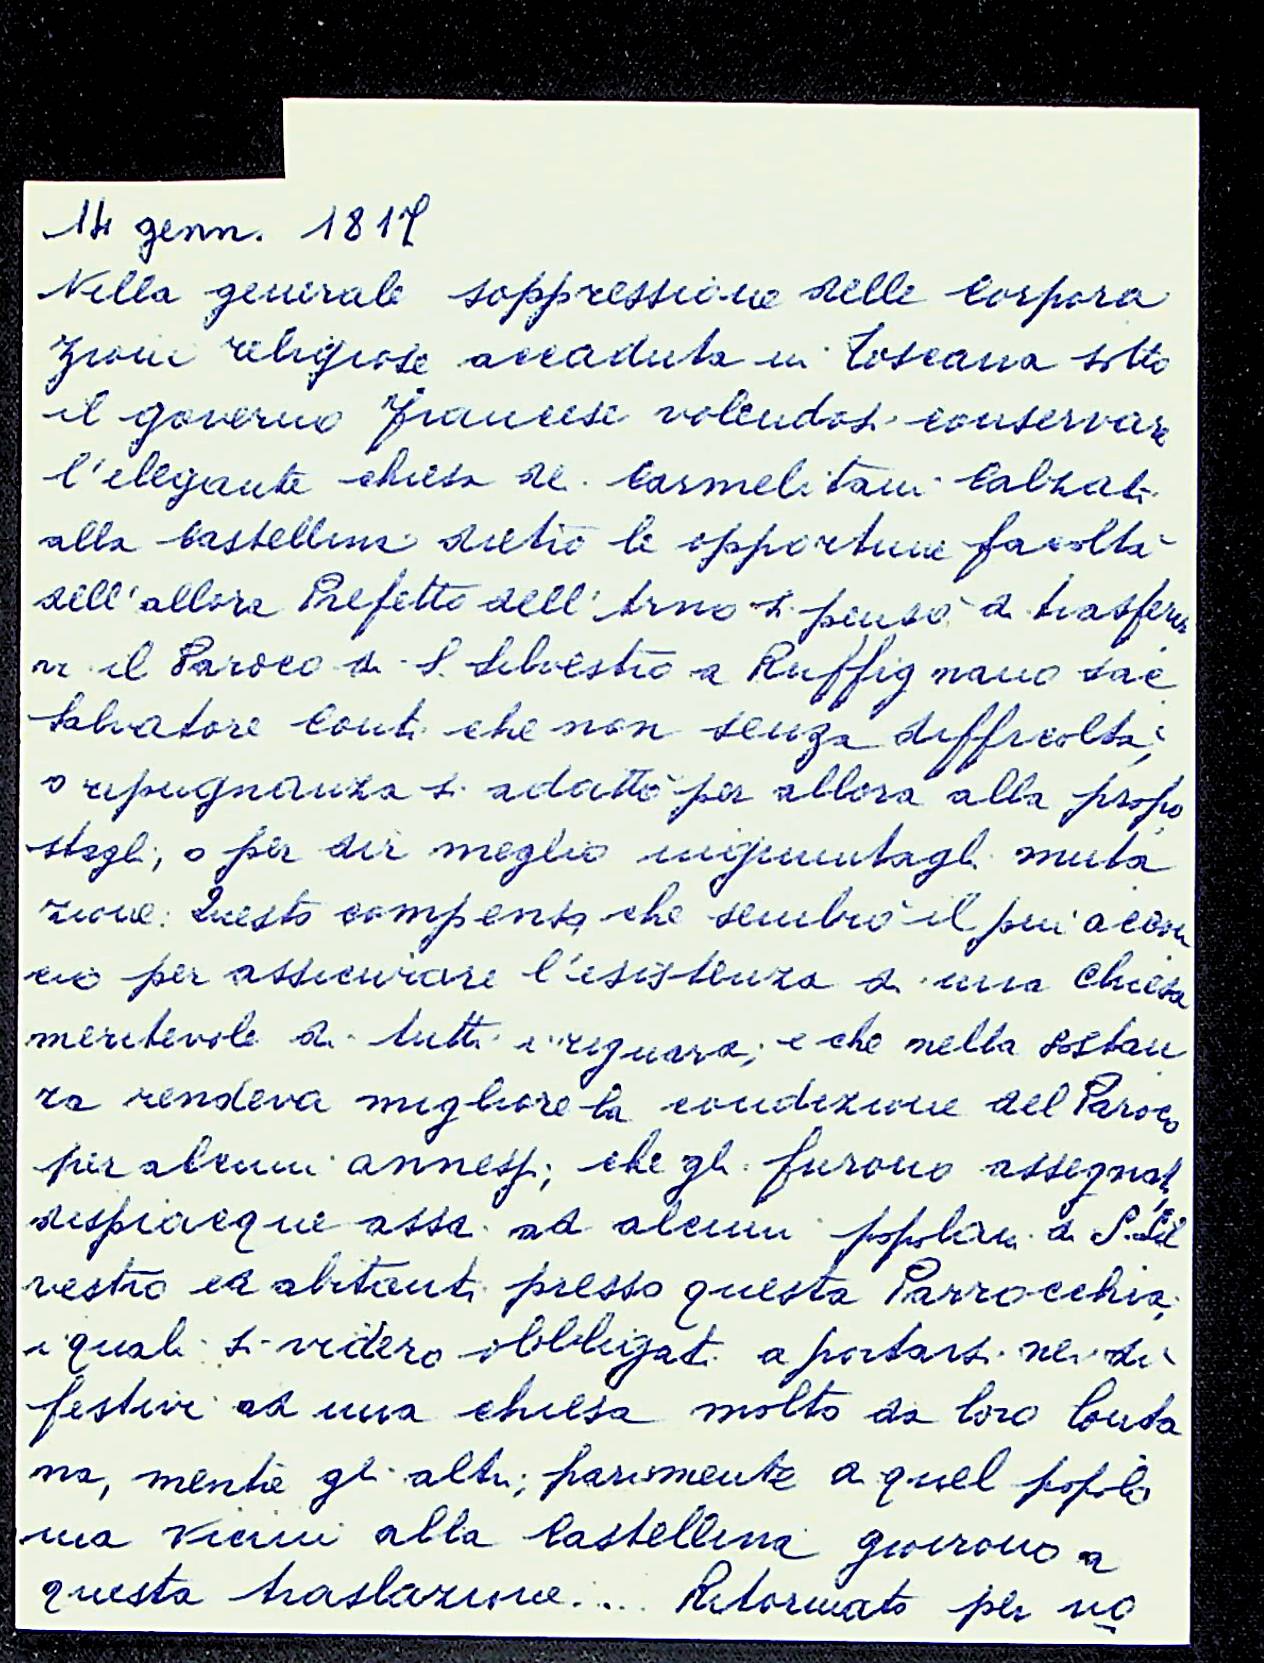 14 genn. 1817
Nella generale soppressione delle corpora
zioni religiose accaduta in Toscana sotto
il governo francese volendosi conservare
l'elegante chiesa de. Carmelitani Calzati
alla Castellina dietro le opportune facoltà
dell'allora Prefetto dell'Arno si pensò di trasferir
vi il Paroco di S. Silvestro a Ruffignano sac
Salvatore Conti che non senza difficoltà,
o repugnanza si adattò per allora alla propo
stagli, o per dir meglio ingiuntagli muta
zione. Questo compenso, che sembrò il più acconc
cio per assicurare l'esistenza di una Chiesa
meritevole di tutti i riguardi; e che nella sostan
za rendeva migliore la condizione del Paroco
per alcuni annessi, che gli furono assegnati
dispiacque assai ad alcuni popolani di S. Sil
vestro ed abitanti presso questa Parrocchia,
i quali si videro obbligati a portarsi nei dì
festivi ad una chiesa molto da loro lonta
na, mentre gli altri, parimente di quel popolo
ma vicini alla Castellina gioirono a
questa traslazione.... Ritornato per no